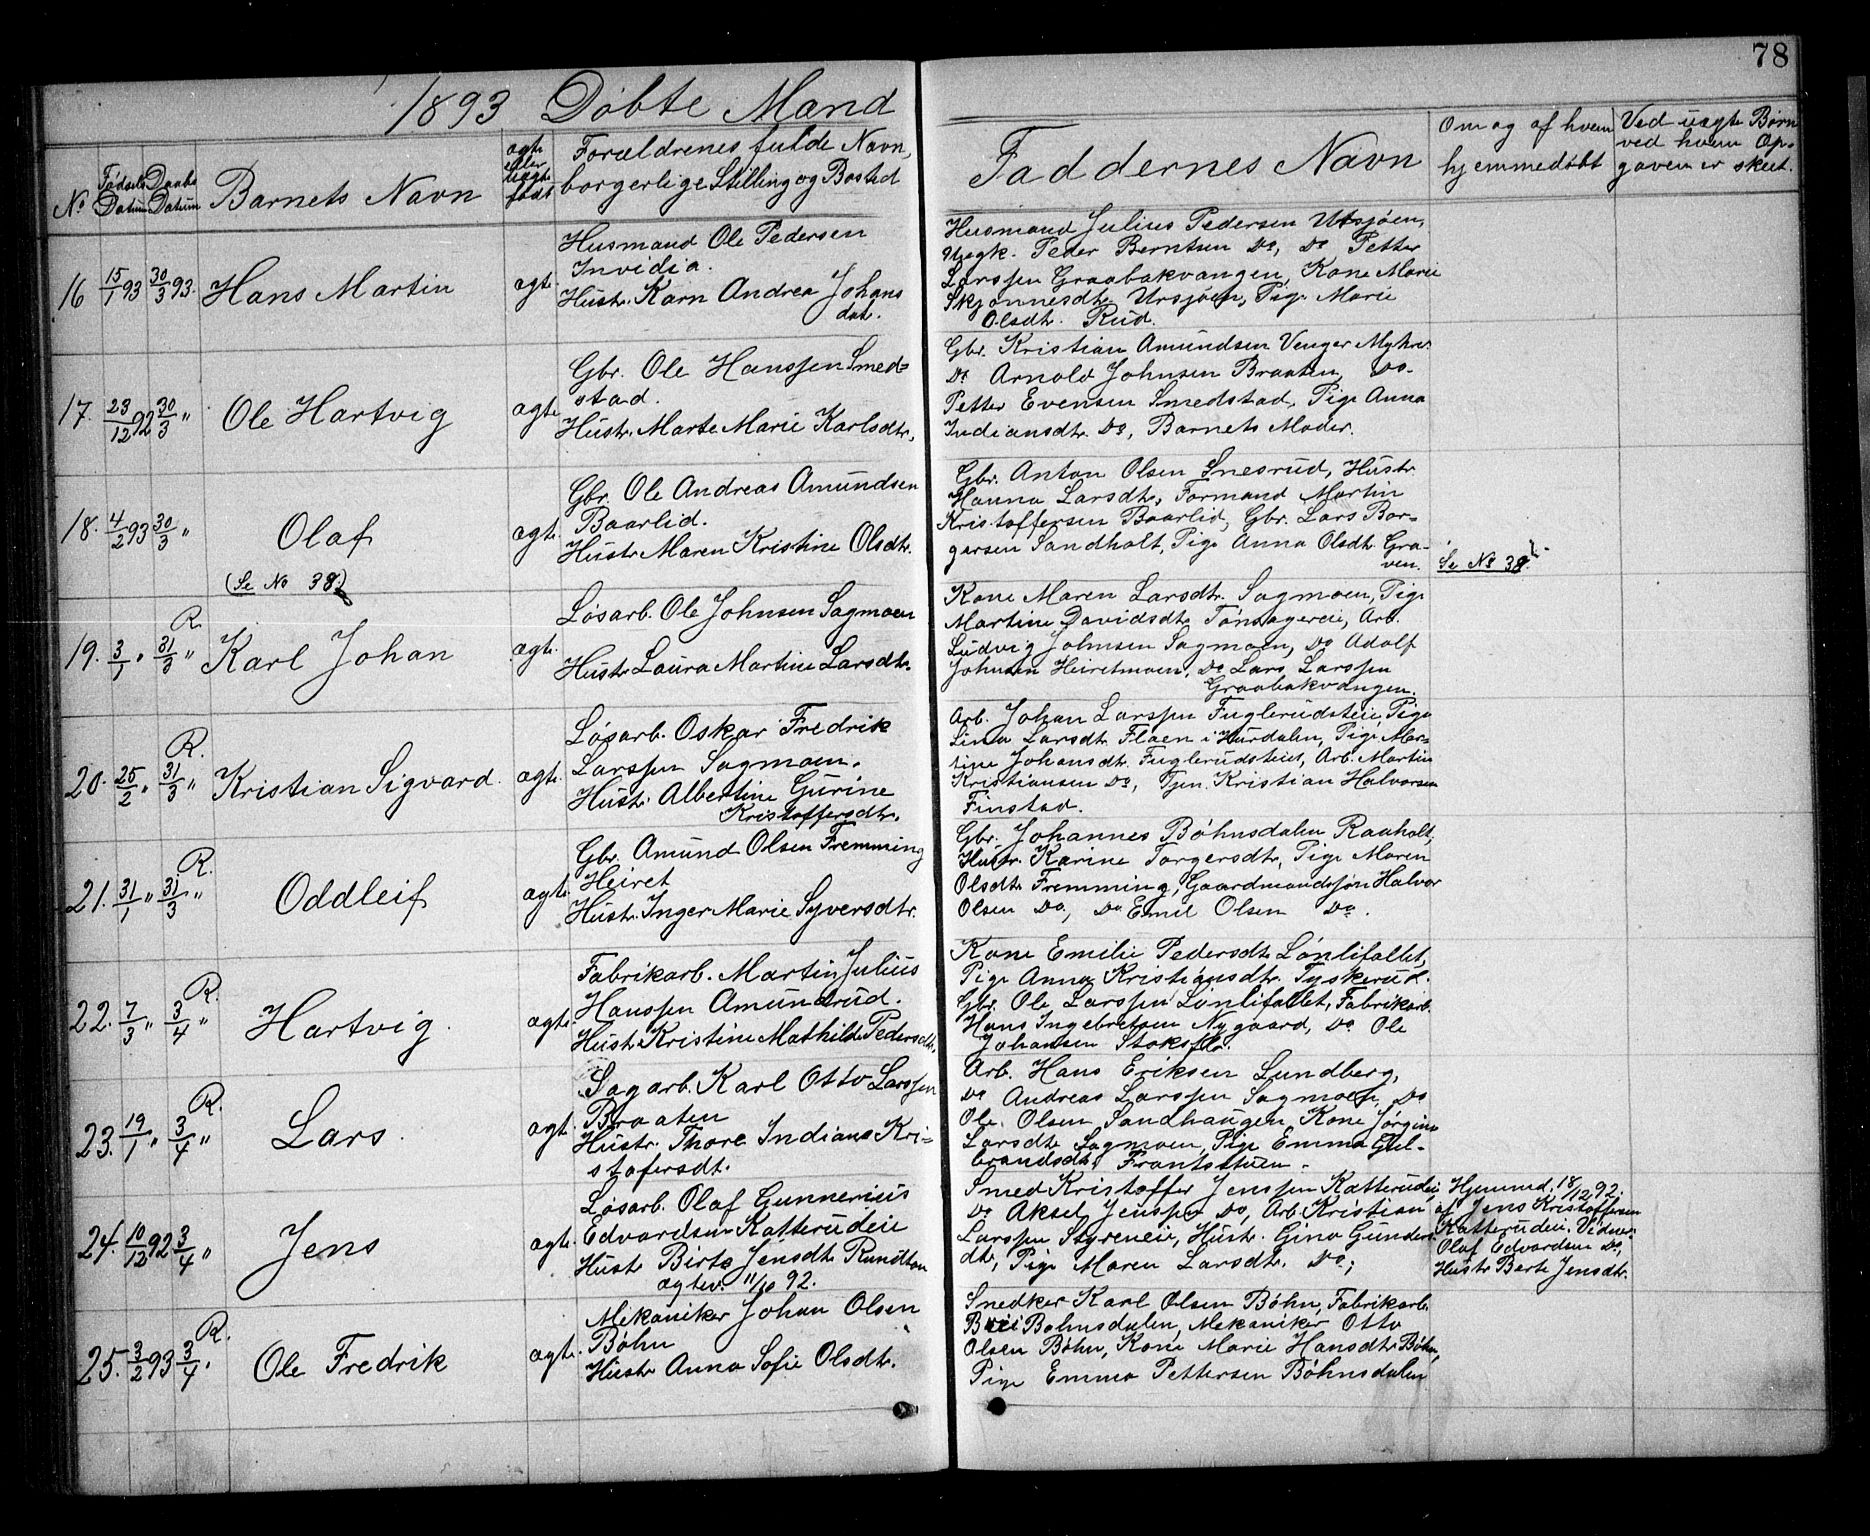 78
1893 Döbte Mand
No
Fødsels Datum
Daabs Datum
Barnets Navn
ægte eller uægte født
Forældrenes fulde Navn, borgerlige Stilling og Bosted
Faddernes Navn
Om og af hvem hjemmedøbt
Ved uægte Børn ved hvem Opgaven er skeet.
16 15/1 93 30/3 93. Hans Martin ægte.
Husmand Ole Pedersen
Invidia.
Hustr. Karn Andrea Johans
dat.
Husmand Julius Pedersen Utsjøen,
Ungk. Peder Berntsen Do, Do Petter
Larssen Graabakvangen, Kone Marie
Skjønnesdtr. Ursjøen, Pige Marie
Olsdtr. Rud.
17. 23/12 92 30/3 " Ole Hartvig ægte
Gbr. Ole Hanssen Smed=
stad.
Hustr. Marte Marie Karlsdtr.
Gbr. Kristian Amundsen Venger Myhrer
Do Arnold Johnsen Braaten, Do-
Petter Evensen Smedstad, Pige Anna
Indiansdtr. Do, Barnets Moder.
18. 4/2 93 30/3 " Olaf ægte.
(Se No 38)
Gbr. Ole Andreas Amundsen
Baarlid.
Hustr. Maren Kristine Olsdtr.
Gbr. Anton Olsen Snesrud, Hustr
Hanna Larsdtr, Formand Martin
Kristoffersen Baarlid, Gbr. Lars Bor=
gersen Sandholt, Pige Anna Olsdtr. Gra-
ven.
Se No 38.
19. 3/1 " 31/3 " R. Karl Johan ægte.
Løsarb. Ole Johnsen Sagmoen
Hustr. Laura Martine Larsdtr.
Kone Maren Larsdtr. Sagmoen, Pige
Martine Davidsdtr. Tønsagereie, Arb.
Ludvig Johnsen Sagmoen, Do Adolf
Johnsen Heiretmoen, Do Lars Larssen
Graabakvangen.
20. 25/2 " 31/3 " R. Kristian Sigvard. ægte.
Løsarb. Oskar Fredrik
Larssen Sagmoen.
Hustr. Albertine Gurine
Kristoffersdtr.
Arb. Johan Larssen Fuglerudsteie, Pige
Lina Larsdtr. Flaen i Hurdalen, Pige Mar=
tine Johansdtr. Fuglerudsteiet, Arb. Martin
Kristiansen Do, Tjen. Kristian Halvorsen
Finstad.
21. 31/1 " 31/3 " R. Oddleif ægte.
Gbr. Amund Olsen Fremming
Heiret
Hustr. Inger Marie Syversdtr.
Gbr. Johannes Bøhnsdalen Raaholt,
Hustr. Karine Torgersdtr, Pige Maren
Olsdtr. Fremming, Gaardmandssøn Halvor
Olsen Do, Do Emil Olsen Do.
22. 7/3 " 3/4 " R. Hartvig. ægte.
Fabrikarb. Martin Julius
Hanssen Amundrud.
Hustr. Kristine Mathilde Pedersdtr.
Kone Emilie Pedersdtr. Lønlifallet,
Pige Anna Kristiansdtr. Tyskerud.
Gbr. Ole Larssen Lønlifallet, Fabrikarb.
Hans Ingebretsen Nygaard, Do Ole
Johansen
23. 19/1 " 3/4 " R. Lars. ægte.
Sagarb. Karl Otto Larssen
Braaten
Hustr. Thore Indiana Kri=
stofersdt.
Arb. Hans Eriksen Lundberg,
Do Andreas Larssen Sagmoen, Do
Ole Olsen Sandhaugen, Kone Jørgine
Larsdtr. Sagmoen, Pige Emma Gul-
brandsdtr. Frantsstuen.
24. 10/12 92 3/4 " Jens ægte.
Løsarb. Olaf Gunnerius
Edvardsen Katterudeie
Hustr Birte Jensdtr. Rundton
ægtev. 11/10 92.
Smed Kristoffer Jenssen Katterudeie,
Do Aksel Jenssen Do, Arb. Kristian
Larssen Styreneie, Hustr. Gina Gunders
dtr, Pige Maren Larsdtr. Do,
Hjemmed. 18/12 92.
af Jens Kristoffersen
Katterudeie. Vidner:
Olaf Edvardsen Do,
Hustr Berte Jensdtr.
25. 3/2 93 3/4 " R. Ole Fredrik ægte.
Mekaniker Johan Olsen
Bøhn
Hustr Anna Sofie Olsdtr.
Snedker Karl Olsen Bøhn, Fabrikarb.
Bøhnsdalen, Mekaniker Otto
Olsen Bøhn, Kone Marie Hansdtr. Bøhn,
Pige Emma Pettersen Bøhnsdalen